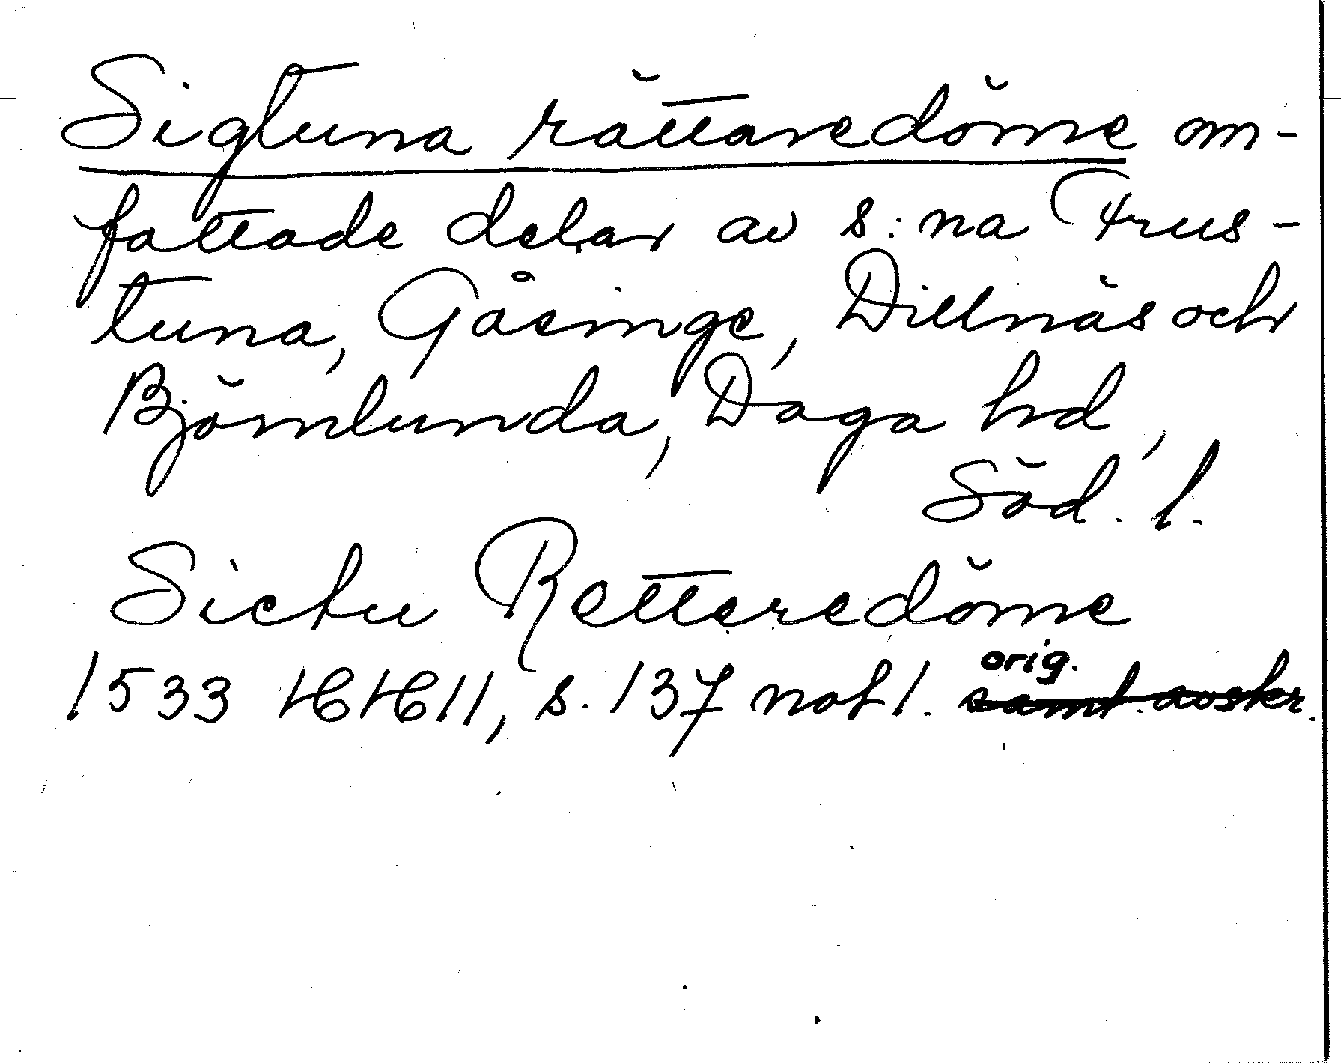 Sigtuna rättaredöme om-
fattade delar av s:na Frus-
tuna, Gåsinge, Dillnäs och
Björnlunda, Daga hd,
Söd. l.
Sictu Retteredöme
orig.
1533 HH 11, s. 137 not 1. samt. avskr.